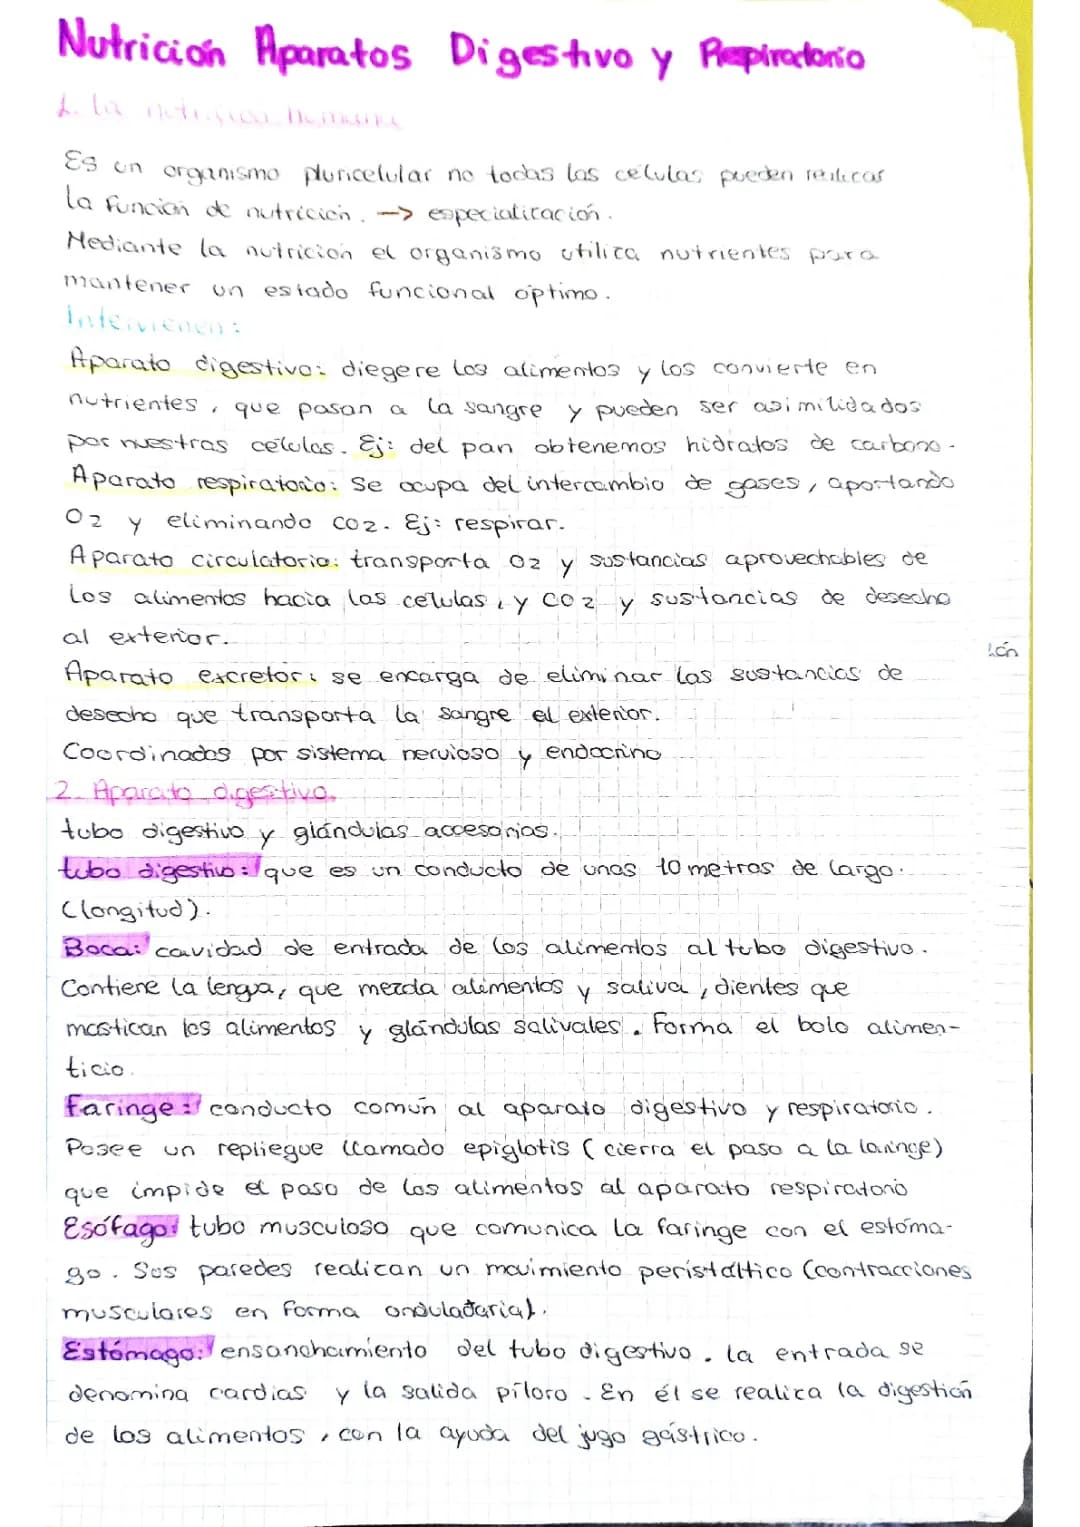 Nutrición Aparatos Digestivo y Respiratorio
1. La nutrición humana
Es un organismo pluricelular no todas las células pueden realizar
la función de nutrición. —> especialización.
Mediante la nutrición el organismo utiliza nutrientes para
mantener un estado funcional óptimo.
Intervienen:
Aparato digestivo: diegere los alimentos y los convierte en
nutrientes, que pasan a la sangre y pueden ser asimilidados
por nuestras células. Ej: del pan obtenemos hidratos de carbono.
Aparato respiratorio: Se ocupa del intercambio de gases, aportando
O2 y eliminando CO2. Ej: respirar.
Aparato circulatorio: transporta O2 y sustancias aprovechables de
los alimentos hacia las células, y CO2 y sustancias de desecho
al exterior.
ión
Aparato excretor: se encarga de eliminar las sustancias de
desecho que transporta la sangre el exterior.
Coordinados por sistema nervioso y endocrino
2. Aparato digestivo.
tubo digestivo y glándulas accesorias.
tubo digestivo: que es un conducto de unos 10 metros de largo.
(longitud).
Boca: cavidad de entrada de los alimentos al tubo digestivo.
Contiene la lengua, que mezcla alimentos y saliva, dientes que
mastican los alimentos y glándulas salivales. Forma el bolo alimen-
ticio.
Faringe: conducto común al aparato digestivo y respiratorio.
Posee un repliegue llamado epiglotis (cierra el paso a la laringe)
que impide el paso de los alimentos al aparato respiratorio
Esófago: tubo musculoso que comunica la faringe con el estóma-
go. Sus paredes realizan un movimiento peristáltico (contracciones
musculares en forma onduladaria).
Estómago: ensanchamiento del tubo digestivo. la entrada se
denomina cardias y la salida píloro. En él se realiza la digestión
de los alimentos, con la ayuda del jugo gástrico.